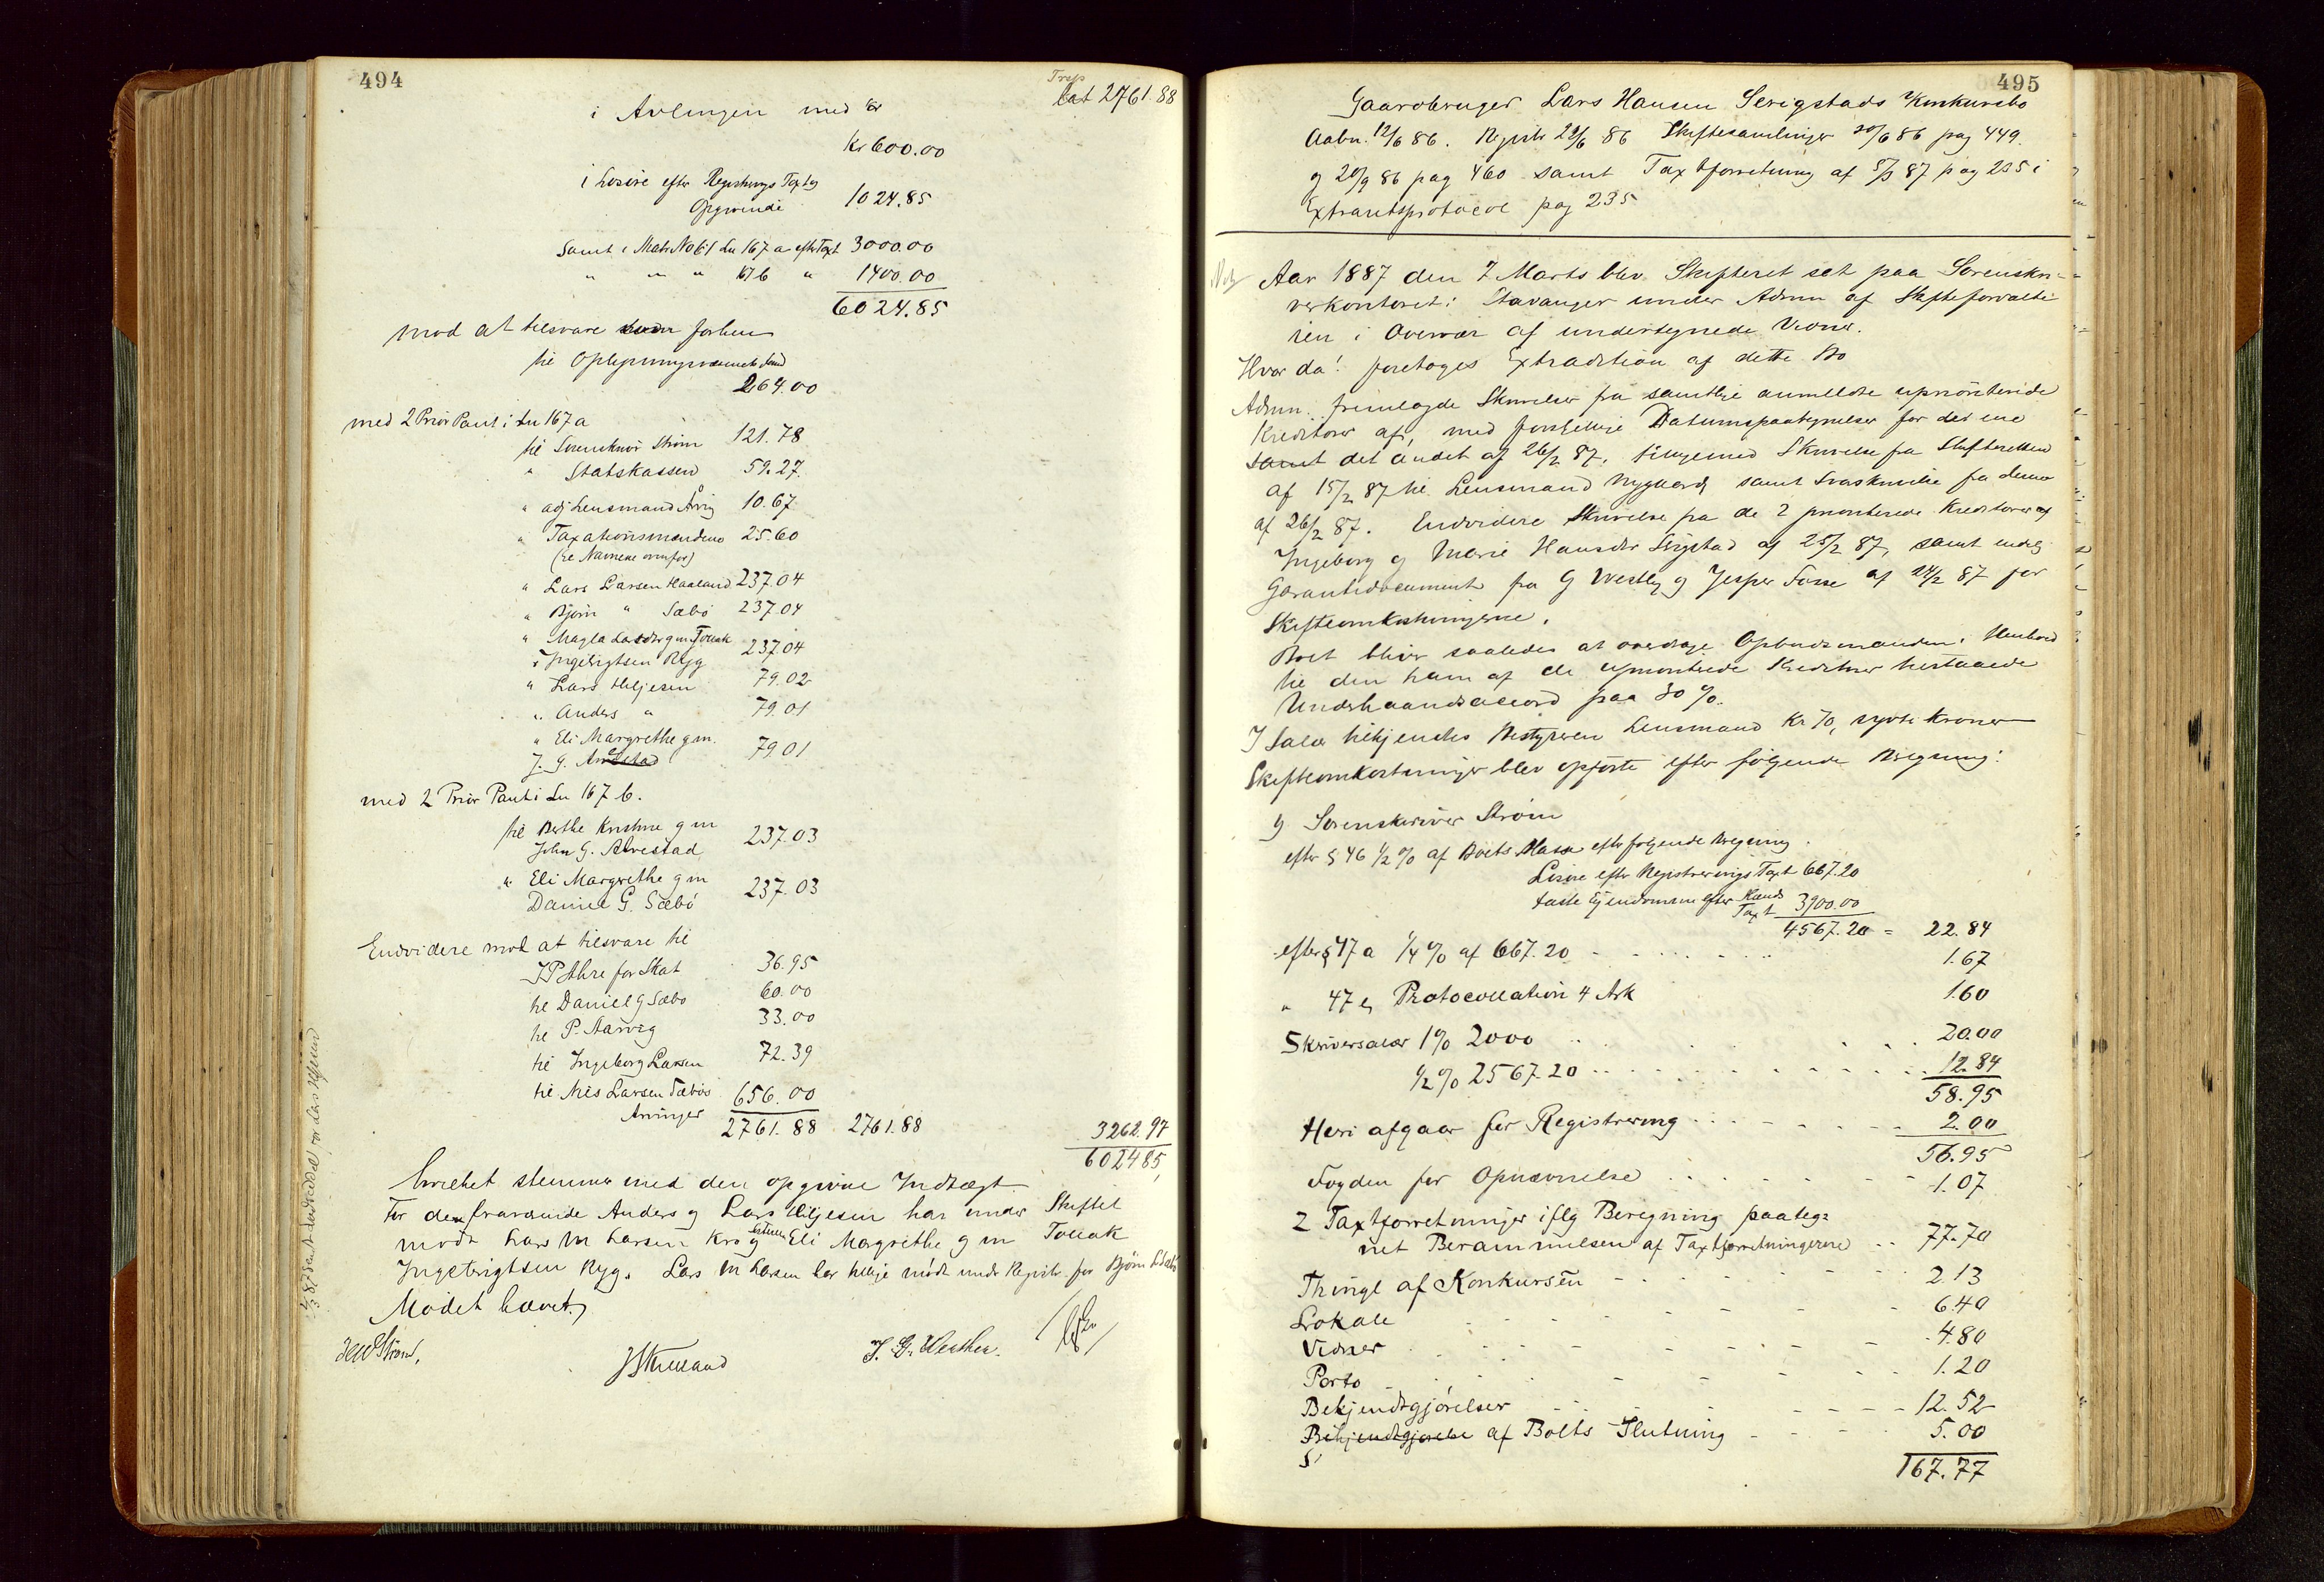 494
Transp
lat 2761.88
i Avlingen med
Kr 600.00
i Løsøre efter Registrerings Taxt og
Opgivende 1024.85
Samt i Matr No 61 Lu 167 a efter Taxt 3000.00
" " " 167 b " 1400.00
6024.85
mod at tilsvare forhen
til Oplysningsvæsenets Fond
264.00
med 2 Prior Pant i Lu 167 a
til Sorenskriver Strøm 121.78
" Statskassen 59.27
" adj Lensmand 10.67
" Taxationsmændene 25.60
(se Navnene ovenfor)
" Lars Larsen Haaland 237.04
" Bjørn " Sæbø 237.04
" Magla Larsdtr g m Tollak
Ingebrigtsen Ryg 237.04
" Lars Eljesen 79.02
" Anders " 79.01
" Eli Margrethe g m.
J. G. 79.01
med 2 Prior Pant i Lu 167 b.
til Berthe Kristine g m
John G. Alvestad 237.03
" Eli Margrethe g m
Daniel G. Sæbø 237.03
Endvidere mod at tilsvare til
for Skat 36.95
til Daniel G Sæbø 60.00
til P. Aarreg 33.00
til Ingeborg Larsen 72.39
til Nils Larsen Sæbøs
Arvinger 656.00
2761.88 2761.88
3262.97
6024.85
hvilket stemmer med den opgivne Indtægt
For den fraværende Anders og Lars Eljesen har under Skiftet
mødt Lars M Larsen Kro og Eli Margrethe g m Tollak
Ingebrigtsen Ryg. Lars M Larsen har tillige mødt under Registr. for Bjørn L Sæbø
Mødet hævet
Strøm.
495
Gaardbruger Lars Hansen Serigstads Konkursbo
Aabn. 12/6 86. Registr 29/6 86 Skiftesamlinger 30/6 86 pag 449.
og 20/9 86 pag 460 samt Taxtforretning af 5/3 87 pag 235 i
Extraretsprotocol pag 235
Aar 1887 den 7 Marts blev Skifteret sat paa Sorenskri-
verkontoret i Stavanger under Admn af Skifteforvalte-
ren i Overvær af undertegnede Vidner.
Hvor da! foretoges Extradition af dette Bo
Admn. fremlagde Skrivelser fra samtlige anmeldte uprioriterede
Kreditorer af, med forskjellige Datumspaategnelser for det ene
samt det andet af 26/2 87, tilligemed Skrivelse fra Skifteretten
af 15/2 87 til Lensmand Nygaard samt Svarskrivelse fra denne
af 26/2 87. Endvidere Skrivelse fra de 2 prioriterede Kreditorer af
Ingeborg og Marie Hansdtr Serigstad af 25/2 87, samt endelig
Garantidocument fra G Westly og Jesper Fosse af 24/2 87 for
Skifteomkostningerne.
Boet bliver saaledes at overdrage Opbudsmanden i Henhold
til den ham af de uprioriterede Kreditorer tilstaaede
Underhaandsaccord paa 30 %.
I Salær tilkjendtes Bestyreren Lensmand Kr 70, sytti Kroner
Skifteomkostninger blev opførte efter følgende Beregning:
1) Sorenskriver Strøm
efter § 46 ½ % af Boets Masse efter følgende Beregning.
Løsøre efter Registrerings Taxt 667.20
faste Ejendomme efter Haands
Taxt 3900.00
4567.20 = 22.84
efter § 47 a ¼ % af 667.20 1.67
" 47 e, Protocollation 4 Ark 1.60
Skriversalær 1 % 2000 20.00
½ % 2567.20 12.84
58.95
Heri afgaar for Registrering 2.00
56.95
Fogden for Opnævnelse 1.07
2 Taxtforretninger iflg Beregning paateg=
net Berammelsen af Taxtforretningerne 77.70
Thingl af Konkursen 2.13
Lokale 6.40
Vidner 4.80
Porto 1.20
Bekjendtgjørelser 12.52
Bekjendtgjørelse af Boets Slutning 5.00
167.77